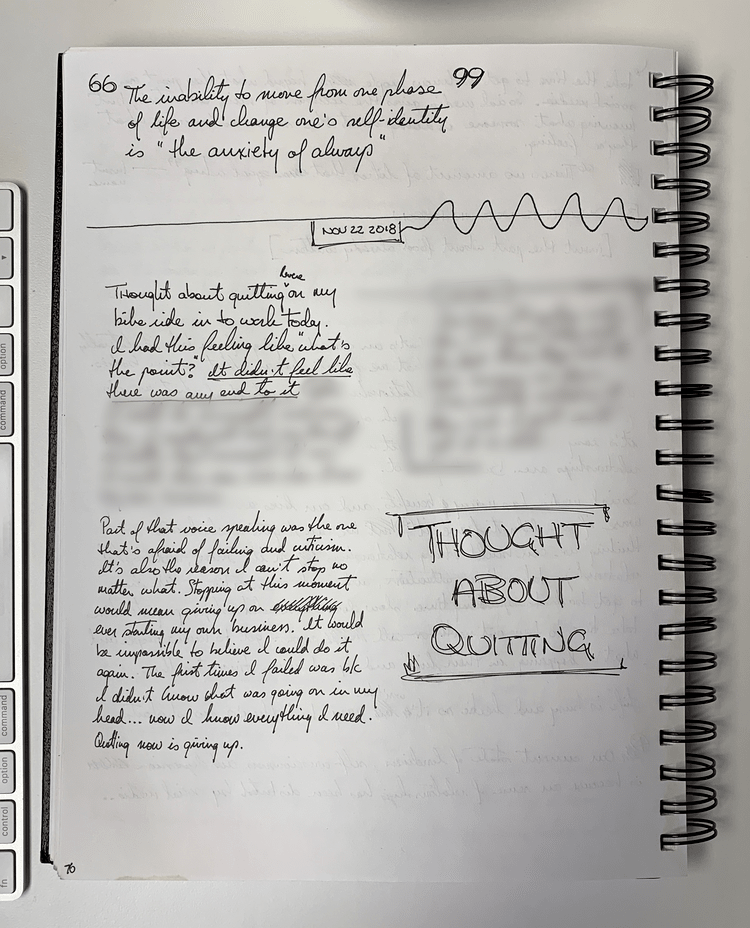 66 The inability to move from one phase 99
of life and change one's self-identity
is "the anxiety of always"
NOV 22 2018
Thought about quitting on my
bike ride in to work today.
I had this feeling like "what's
the point?" It didn't feel like
there was any end to it
Part of that voice speaking was the one
that's afraid of failing and criticism.
It's also the reason I can't stop no
matter what. Stopping at this moment
would mean giving up on
ever starting my own business. It would
be impossible to believe I could do it
again. The first times I failed was b/c
I didn't know what was going on in my
head... now I know everything I need.
Quitting now is giving up.
THOUGHT
ABOUT
QUITTING
70
option
command
command
option
control
fn